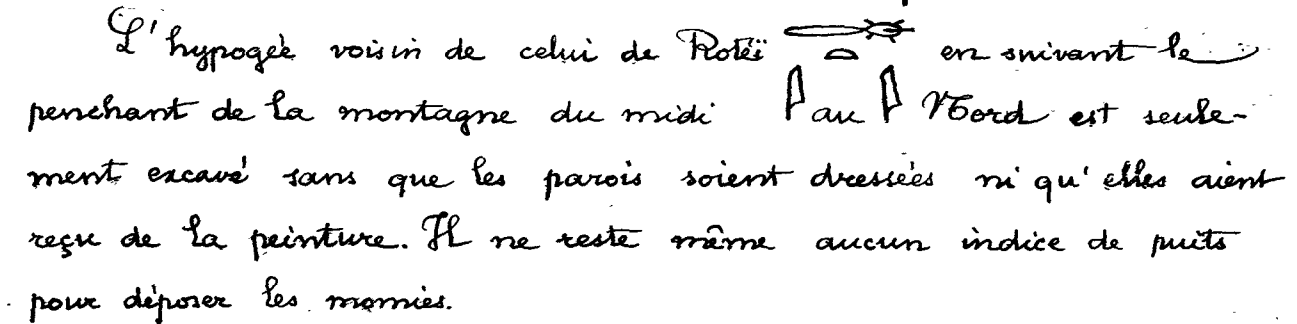 L'hypogée voisin de celui de Rotëi en suivant le
penchant de la montagne du midi au Nord est seule-
ment excavé sans que les parois soient dressées ni qu'elles aient
reçu de la peinture. Il ne reste même aucun indice de puits
pour déposer les momies.